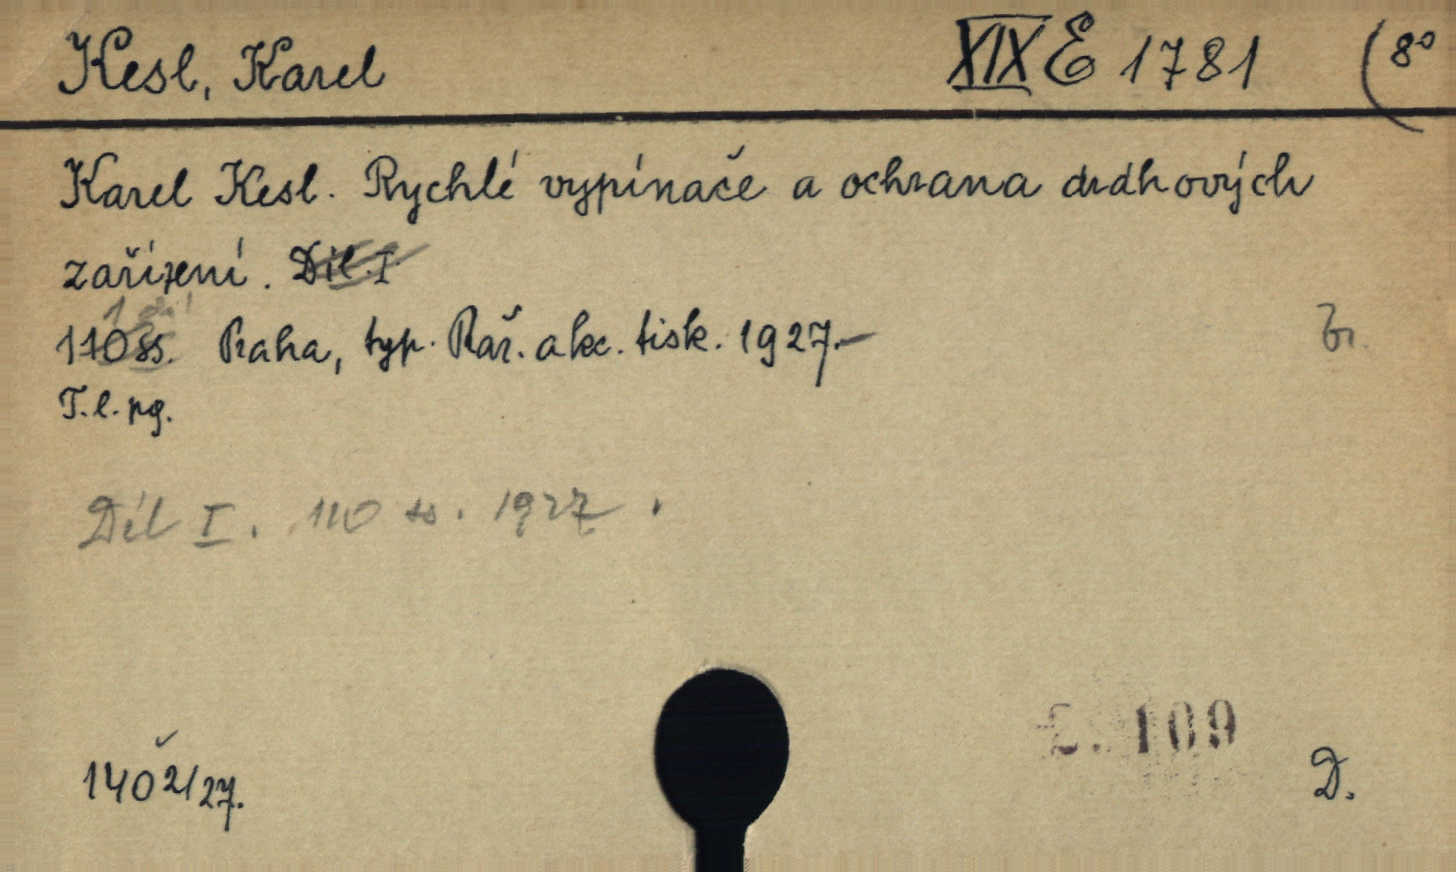 Kesl, Karel XIX E 1781 (8°
Karel Kesl. Rychlé vypínače a ochrana drahových
zařízení. Díl. I
110 ss. Praha, typ. Rař. akc. tisk. 1927.—
T.l.pg.
Díl I. 110 ss. 1927.
109
1402/27.
D.